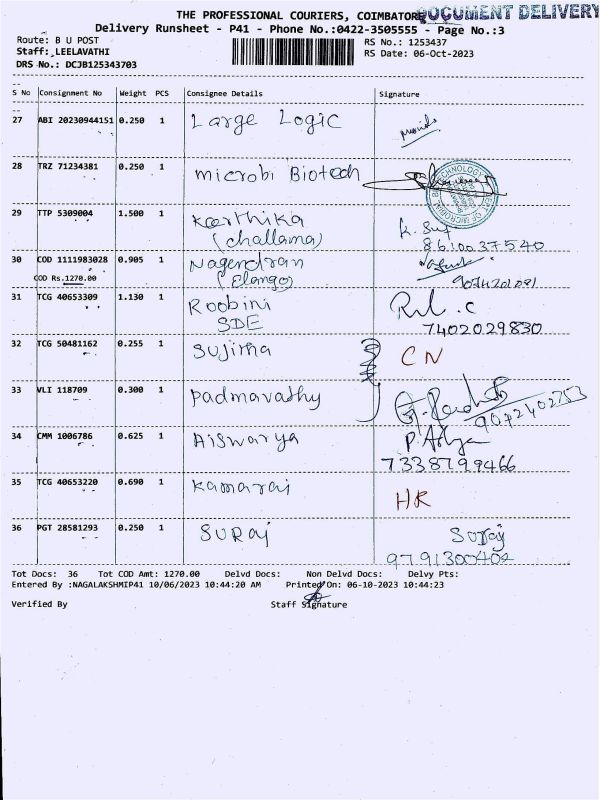 THE PROFESSIONAL COURIERS, COIMBATORE DOCUMENT DELIVERY
Delivery Runsheet - P41 - Phone No.:0422-3505555 - Page No.:3
Route: B U POST RS No.: 1253437
Staff: LEELAVATHI RS Date: 06-Oct-2023
DRS No.: DCJB125343703
S No Consignment No Weight PCS Consignee Details Signature
27 ABI 20230944151 0.250 1 Large Logic
28 TRZ 71234381 0.250 1 microbi Biotech
29 TTP 5309004 1.500 1 Karthika
(challama) 8610037540
30 COD 1111983028 0.905 1 Nagendran
COD Rs.1270.00 (Elango)
31 TCG 40653309 1.130 1 Roobini
SDE 7402029830
32 TCG 50481162 0.255 1 Sujitha CN
33 VLI 118709 0.300 1 Padmavathy 9072402753
34 CMM 1006786 0.625 1 Aiswarya
7338799466
35 TCG 40653220 0.690 1 Kamaraj HR
36 PGT 28581293 0.250 1 SURaj Suraj
9791300404
Tot Docs: 36 Tot COD Amt: 1270.00 Delvd Docs: Non Delvd Docs: Delvy Pts:
Entered By :NAGALAKSHMIP41 10/06/2023 10:44:20 AM Printed On: 06-10-2023 10:44:23
Verified By Staff Signature